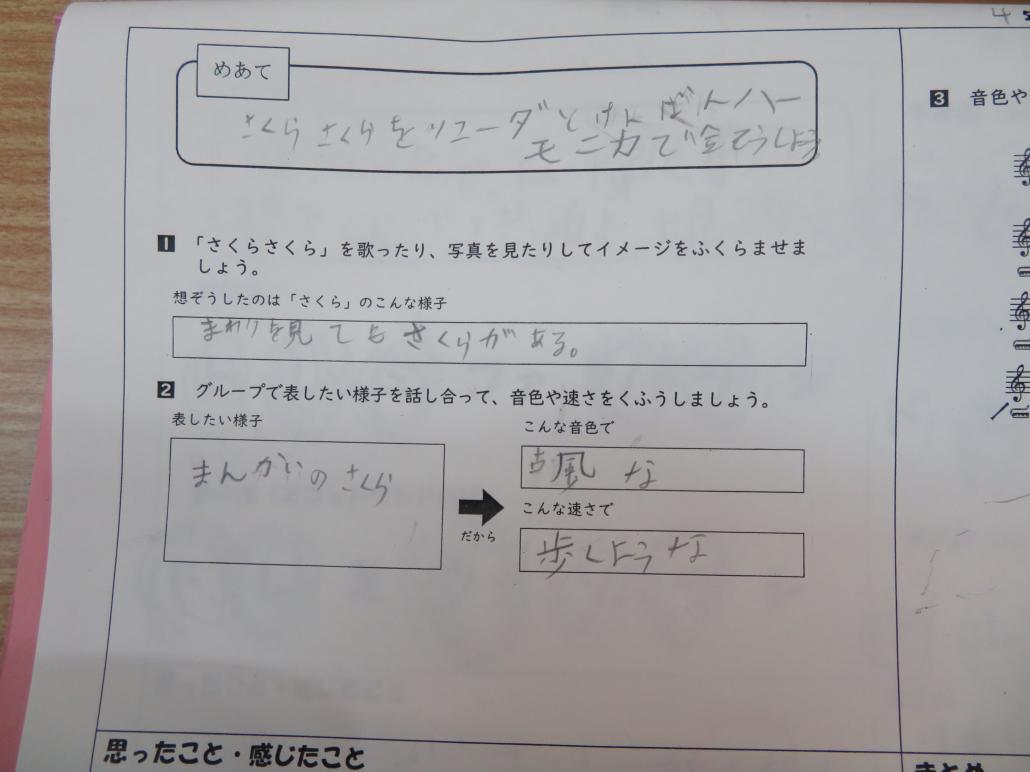 4
めあて
さくらさくらをリコーダとけんばんハー
モニカで合そうしよう
1 「さくらさくら」を歌ったり、写真を見たりしてイメージをふくらませま
しょう。
想ぞうしたのは「さくら」のこんな様子
まわりを見てもさくらがある。
2 グループで表したい様子を話し合って、音色や速さをくふうしましょう。
表したい様子
まんかいのさくら
だから
こんな音色で
古風な
こんな速さで
歩くような
思ったこと・感じたこと
3 音色や
まとめ